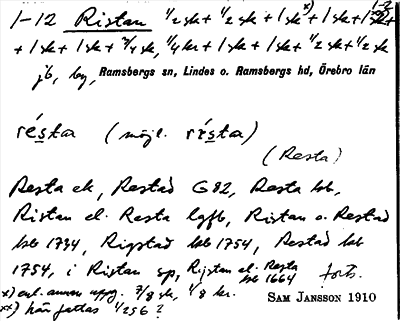 1-12 Ristan 1/2 sk + 1/2 sk + 1 sk x) + 1 sk + 1 sk
+ 1 sk + 1 sk + 3/4 sk, 1/4 kr + 1 sk + 1 sk + 1/2 sk + 1/2 sk
jb, by, Ramsbergs sn, Lindes o. Ramsbergs hd, Örebro län
résta (möjl. résta)
(Resta)
Resta ek, Restad G82, Resta
Ristan el. Resta lgfb, Ristan o. Restad
1734, Rigstad 1754, Restad
1754, i Ristan sp, Rijstan el. Resta
1664 forts.
x) enl. annan uppg. 7/8 sk, 1/8 kr.
xx) här fattas 1/256?
SAM JANSSON 1910